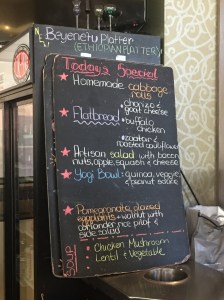 Beyenetu Platter
(ETHIOPIAN PLATTER)
Today's Special
Homemade cabbage
rolls
Flatbread
chorizo &
goat cheese
buffalo
chicken
roasted
cauliflower
Artisan salad with bacon
nuts, apple, squash & cheese
Yogi Bowl: quinoa, veggie,
& peanut sauce
Pomegranate glazed
eggplants + walnut with
coriander rice pilaf &
side salad
SOUP
Chicken Mushroom
Lentil & Vegetable